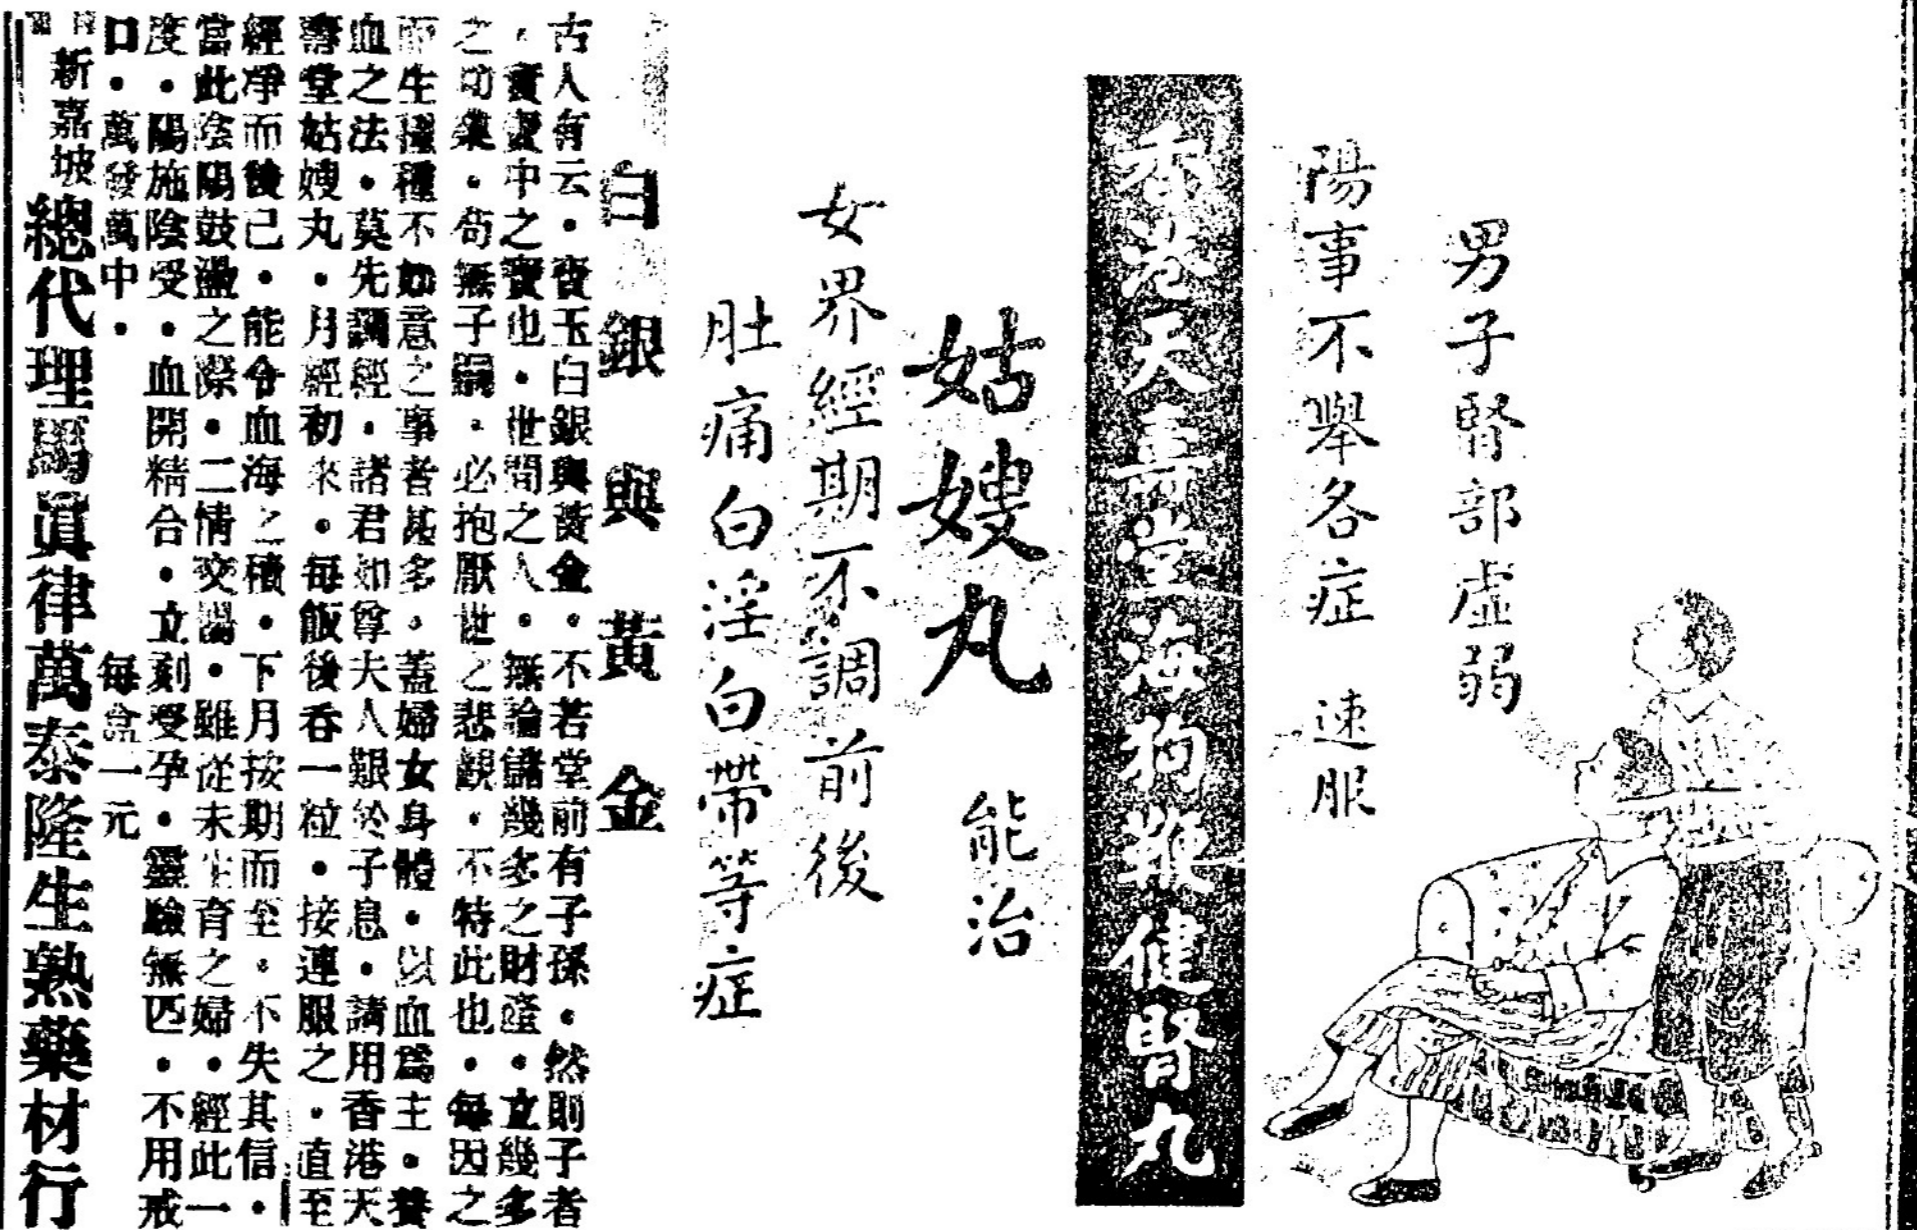 男子腎部虛弱
陽事不舉各症 速服
香港天壽堂海狗鞭健腎丸
姑嫂丸 能治
女界經期不調前後
肚痛白淫白帶等症
白銀與黃金
古人有云・寶玉白銀與黃金・不若堂前有子孫・然則子者
・寶中之寶也・世間之人・無論儲幾多之財產・立幾多
之功業・苟無子嗣・必抱厭世之悲觀・不特此也・每因之
而生種種不如意之事者甚多・蓋婦女身體・以血爲主・養
血之法・莫先調經・諸君如尊夫人艱於子息・請用香港天
壽堂姑嫂丸・月經初來・每飯後吞一粒・接連服之・直至
經凈而後已・能令血海之積・下月按期而至・不失其信・
當此陰陽鼓盪之際・二情交暢・雖從未生育之婦・經此一
度・陽施陰受・血開精合・立刻受孕・靈驗無匹・不用戒
口・萬發萬中・ 每盒一元
新嘉坡 總代理馬真律萬泰隆生熟藥材行